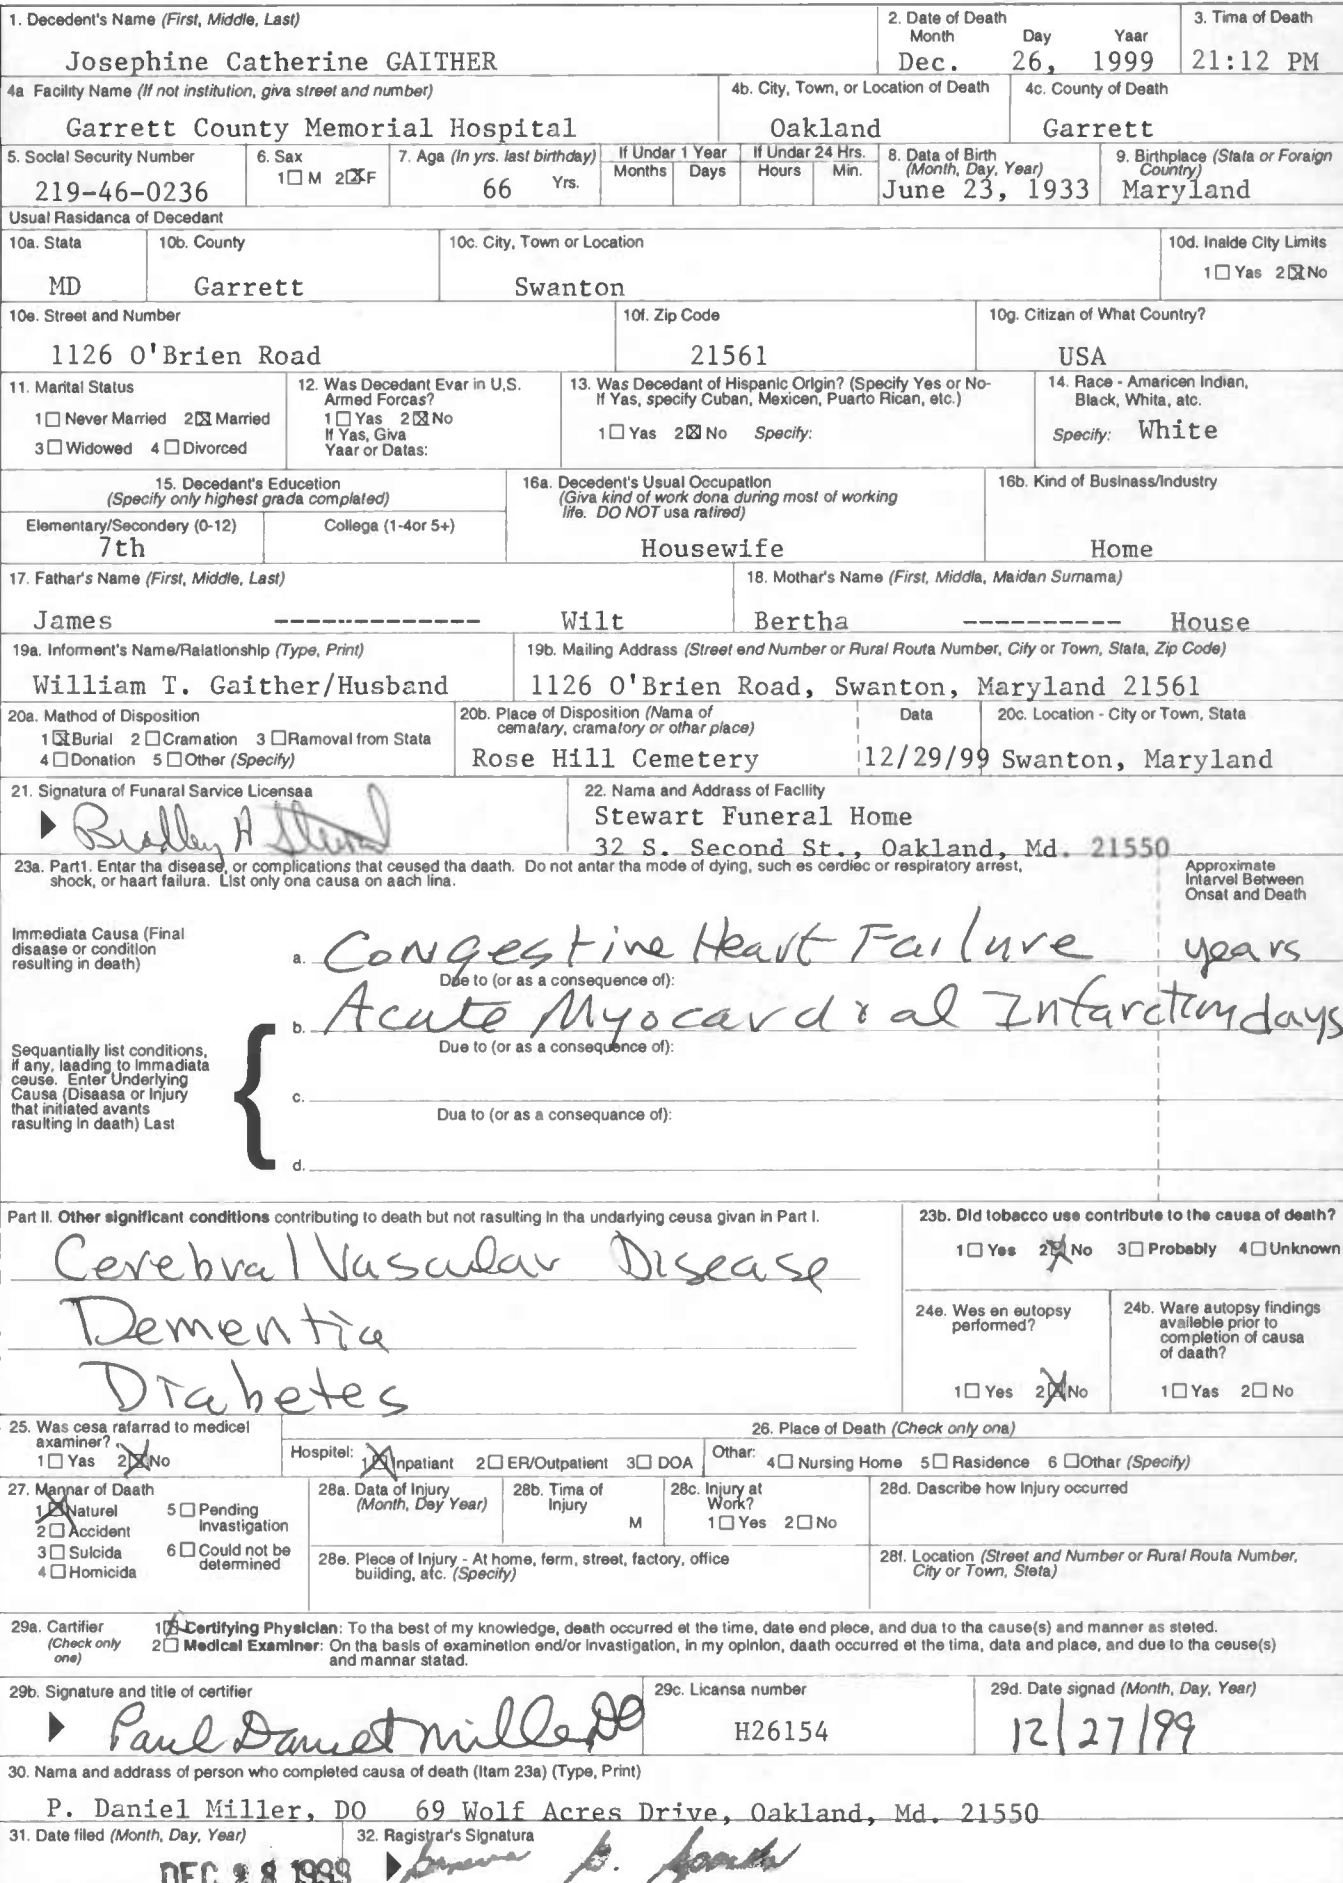 1. Decedent's Name (First, Middle, Last)
Josephine Catherine GAITHER
2. Date of Death
Month Day Yaar
Dec. 26, 1999
3. Tima of Death
21:12 PM
4a Facility Name (If not institution, giva street and number)
Garrett County Memorial Hospital
4b. City, Town, or Location of Death
Oakland
4c. County of Death
Garrett
5. Social Security Number
219-46-0236
6. Sax
1☐ M 2☒F
7. Aga (In yrs. last birthday)
66 Yrs.
If Undar 1 Year
Months Days
If Undar 24 Hrs.
Hours Min.
8. Data of Birth
(Month, Day, Year)
June 23, 1933
9. Birthplace (Stata or Foraign
Country)
Maryland
Usual Rasidanca of Decedant
10a. Stata
MD
10b. County
Garrett
10c. City, Town or Location
Swanton
10d. Inalde City Limits
1☐ Yas 2☒No
10e. Street and Number
1126 O'Brien Road
10f. Zip Code
21561
10g. Citizan of What Country?
USA
11. Marital Status
1☐ Never Married 2☒ Married
3☐ Widowed 4☐ Divorced
12. Was Decedant Evar in U,S.
Armed Forcas?
1☐ Yas 2☒No
If Yas, Giva
Yaar or Datas:
13. Was Decedant of Hispanic Origin? (Specify Yes or No-
If Yas, specify Cuban, Mexicen, Puarto Rican, etc.)
1☐ Yas 2☒ No Specify:
14. Race - Amaricen Indian,
Black, Whita, atc.
Specify: White
15. Decedant's Education
(Specify only highest grada complated)
Elementary/Secondery (0-12)
7th
Collega (1-4or 5+)
16a. Decedent's Usual Occupation
(Giva kind of work dona during most of working
life. DO NOT usa ratired)
Housewife
16b. Kind of Businass/Industry
Home
17. Fathar's Name (First, Middle, Last)
James -------------- Wilt
18. Mothar's Name (First, Middla, Maidan Surnama)
Bertha ---------- House
19a. Informent's Name/Ralationship (Type, Print)
William T. Gaither/Husband
19b. Mailing Address (Street end Number or Rural Routa Number, City or Town, Stata, Zip Code)
1126 O'Brien Road, Swanton, Maryland 21561
20a. Mathod of Disposition
1☒Burial 2☐Cramation 3☐Ramoval from Stata
4☐Donation 5☐Other (Specify)
20b. Place of Disposition (Nama of
cematary, cramatory or othar place)
Rose Hill Cemetery
Data
12/29/99
20c. Location - City or Town, Stata
Swanton, Maryland
21. Signatura of Funaral Sarvice Licensaa
Bradley A Stewart
22. Nama and Address of Facility
Stewart Funeral Home
32 S. Second St., Oakland, Md. 21550
23a. Part1. Entar tha disease, or complications that ceused tha daath. Do not antar tha mode of dying, such es cerdiec or respiratory arrest,
shock, or haart failura. List only ona causa on aach lina.
Approximate
Intarvel Between
Onsat and Death
Immediata Causa (Final
disaase or condition
resulting in death)
a. Congestive Heart Failure years
Due to (or as a consequence of):
b. Acute Myocardial Infarction days
Due to (or as a consequence of):
Sequantially list conditions,
if any, laading to Immadiata
ceuse. Enter Underlying
Causa (Disaasa or Injury
that initiated avants
rasulting In daath) Last
c.
Dua to (or as a consequance of):
d.
Part II. Other significant conditions contributing to death but not rasulting In tha undarlying ceusa givan in Part I.
Cerebral Vascular Disease
Dementia
Diabetes
23b. Did tobacco use contribute to the causa of death?
1☐ Yes 2☒ No 3☐ Probably 4☐ Unknown
24e. Wes en eutopsy
performed?
1☐ Yes 2☒No
24b. Ware autopsy findings
availeble prior to
completion of causa
of daath?
1☐ Yas 2☐ No
25. Was cesa rafarrad to medicel
axaminer?
1☐ Yas 2☒No
26. Place of Death (Check only ona)
Hospitel: 1☒Inpatiant 2☐ ER/Outpatient 3☐ DOA
Othar: 4☐ Nursing Home 5☐ Rasidence 6 ☐Othar (Specify)
27. Mannar of Daath
1☒Naturel
2☐Accident
3☐Sulcida
4☐Homicida
5☐ Pending
Invastigation
6☐ Could not be
determined
28a. Data of Injury
(Month, Dey Year)
28b. Tima of
Injury
M
28c. Injury at
Work?
1☐ Yes 2☐ No
28d. Dascribe how Injury occurred
28e. Plece of Injury - At home, ferm, street, factory, office
building, atc. (Specify)
28f. Location (Street and Number or Rural Routa Number,
City or Town, Steta)
29a. Cartifier
(Check only
one)
1☒ Certifying Physician: To tha best of my knowledge, death occurred et the time, date end plece, and dua to tha cause(s) and manner as steted.
2☐ Medical Examiner: On tha basis of examinetion end/or Invastigation, in my opinion, daath occurred et the tima, data and place, and due to tha ceuse(s)
and mannar statad.
29b. Signature and title of certifier
Paul Daniel Miller DO
29c. Licansa number
H26154
29d. Date signad (Month, Day, Year)
12/27/99
30. Nama and address of person who completed causa of death (Itam 23a) (Type, Print)
P. Daniel Miller, DO 69 Wolf Acres Drive, Oakland, Md. 21550
31. Date filed (Month, Day, Year)
DEC 28 1999
32. Ragistrar's Signatura